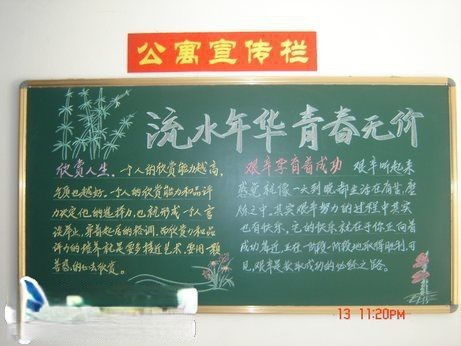 公寓宣传栏
流水年华 青春无价
欣赏人生，一个人的欣赏能力越高，
气质也越好。一个人的欣赏能力和品评
力决定他的选择力，也就形成一个人言
谈举止，
力的培养就是要多接近艺术，要用一颗
善感的心去欣赏。
艰辛孕育着成功 艰辛听起来
感觉就像一天到晚都生活在痛苦、磨
难之中。其实艰辛努力的过程中其实
也有快乐，它的快乐就在于你正向着
成功靠近，正在一阶段一阶段地取得胜利。可
见，艰辛是获取成功的必经之路。
13 11:20PM